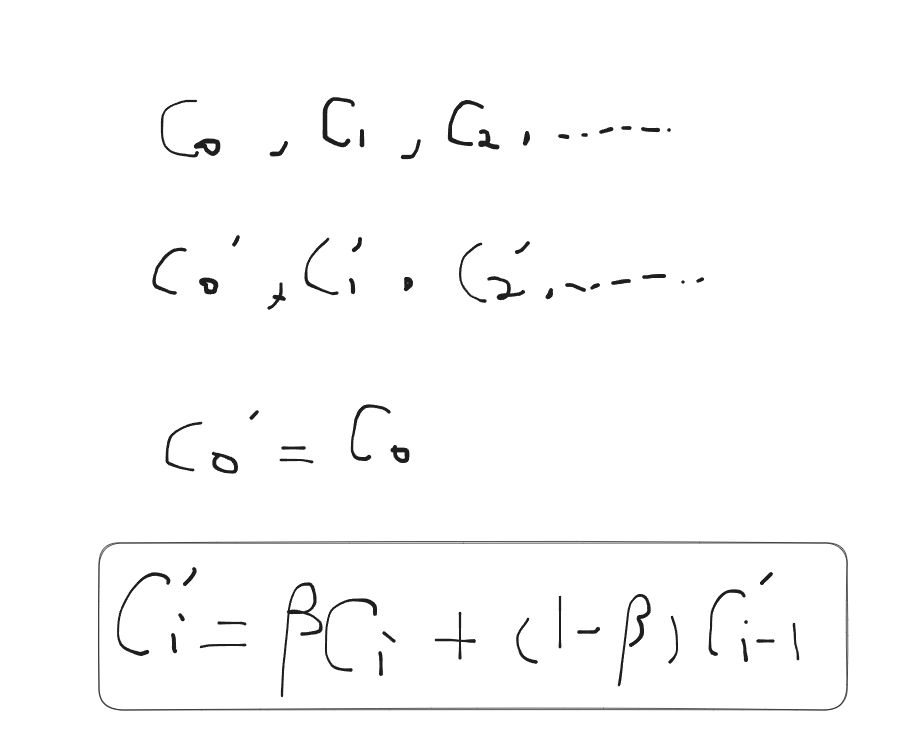 C₀ , C₁ , C₂ , .......
C₀′ , C₁′ , C₂′ , .......
C₀′ = C₀
Cᵢ′ = βCᵢ + (1-β) C′ᵢ₋₁